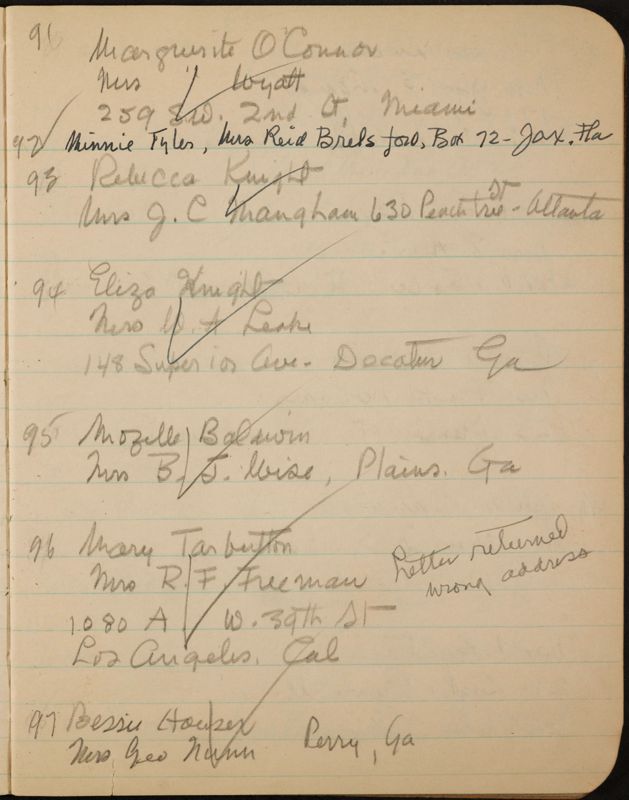 91 Marguerite O'Connor
Mrs " Wyatt
259 S.W. 2nd St, Miami
92 Minnie Tyler, Mrs Reid Brelsford, Box 72 - Jax. Fla
93 Rebecca Knight
Mrs J. C Mangham 630 Peachtree St - Atlanta
94 Eliza Knight
Mrs W. A Leake
148 Superior Ave - Decatur Ga
95 Mozelle Baldwin
Mrs B. J. Wise, Plains. Ga
96 Mary Tarbutton
Mrs R. F. Freeman
1080 A W. 39th St
Los Angeles, Cal
Letter returned
wrong address
97 Bessie Houser
Mrs Geo Nunn Perry, Ga